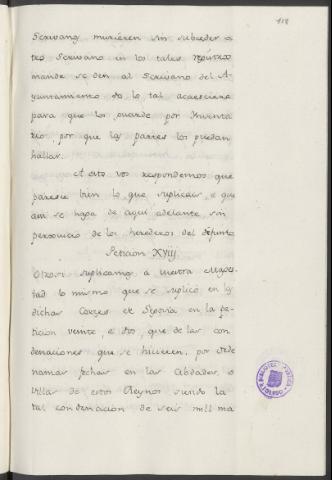 118
Scrivano murieren sin subceder o
tro Scrivano en los tales registros
mande se den al Scrivano del A-
yuntamiento do lo tal acaesciere
para que los guarde por Inventa
rio, por que las partes los puedan
hallar.
A esto vos respondemos que
paresce bien lo que suplicais, e que
ansi se haga de aqui adelante, sin
perjuicio de los herederos del defunto
Peticion XVIIj
Otrosi suplicamos a vuestra Mages-
tad lo mismo que se suplicó en las
dichas Cortes de Segovia en la pe-
ticion veinte, e dos, que de las con
denaciones que se hicieren, por orde
nanzas fechas en las Abdades, o
Villas de estos Reynos siendo la
tal condenacion de seis mill ma
BIBLIOTECA PUBLICA
TOLEDO